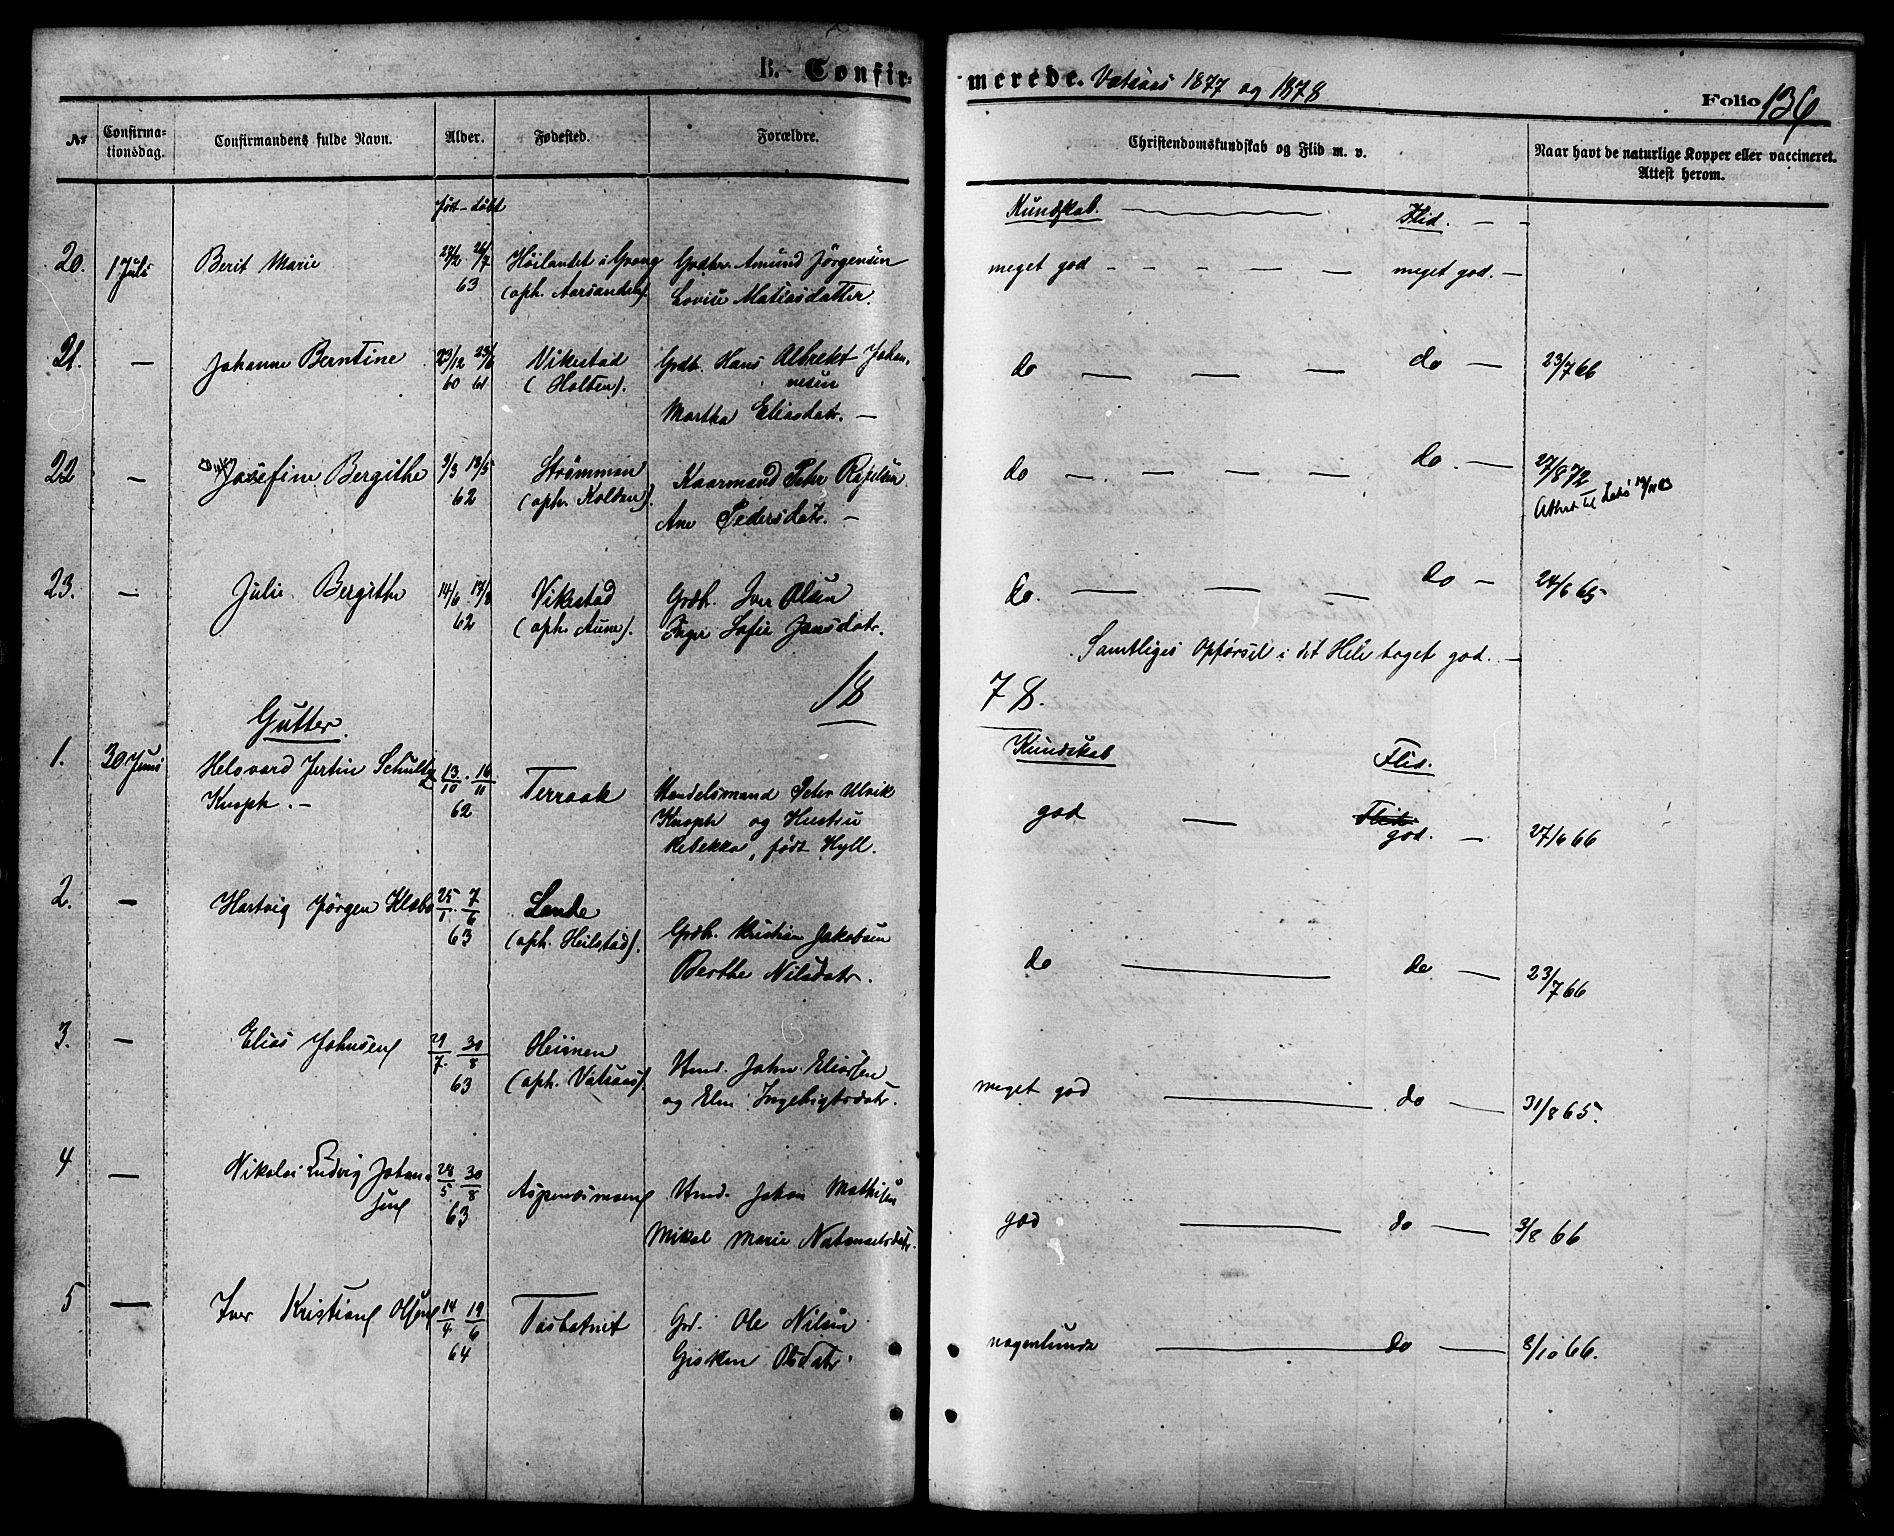 B. Confirmerede. Vatsaas 1877 og 1878
Folio 136
№ Confirmationsdag. Confirmandens fulde Navn. Alder. Fødested. Forældre. Christendomskundskab og Flid m. v. Naar havt de naturlige Kopper eller vaccineret. Attest herom.
født – døbt Kundskab. Flid. —
20. 1 Juli Berit Marie 27/2 26/7 63 Høilandet i Grong (oph. Aarsanden) Gdbr. Amund Jørgensen
Lovise Matiasdatter. meget god — meget god. —
21. — Johanne Berntine 23/12 60 23/6 61 Vikestad (Holten). Grdb. Hans Albrekt Johannesen
Martha Eliasdatr. — do — do — 23/7 66
22 — Josefine Bergithe 3/3 13/5 62 Strømmen (oph. Kolden). Kaarmand Peter
Ane Pedersdatr. — do — do. — 27/8 72
Attest til
23. — Julie Bergithe 14/6 17/8 62 Vikestad (oph. Aune). Grdb. Iver Olsen
Inger Sofie Jensdatr. do. — do — 24/6 65
Samtliges Opførsel i det Hele taget god. —
18 78.
Gutter. Kundskab Flid.
1. 30 Juni Schultz
Knoph. — 13/10 16/11 62 Terraak Handelsmand Peter Ulvik
Knoph og Hustru
Rebekka, født Hyll. god — Flid. god. — 27/6 66
2. — Hartvig Jørgen Klæbo 25/1 7/6 63 Lande (oph. Heilstad). Grdb. Kristian Jakobsen
Berthe Nilsdatr. do — do. — 23/7 66
3. — Elias Johnsen 29/7 30/8 63 (oph. Vatsaas) Hmd. John Eliassen
og Elen Ingebrigtsdatr. meget god — do — 31/8 65.
4 — Nikolai Ludvig Johansen 28/5 30/8 63 Aspenesmoen Hmd. Johan Mathisen
Mikal Marie Natanaelsdatr. god — do — 3/8 66
5 — Iver Kristian Olsen 14/4 19/6 64 Grd. Ole Nilsen
Gisken Olsdatr. nogenlunde — do — 8/10 66.